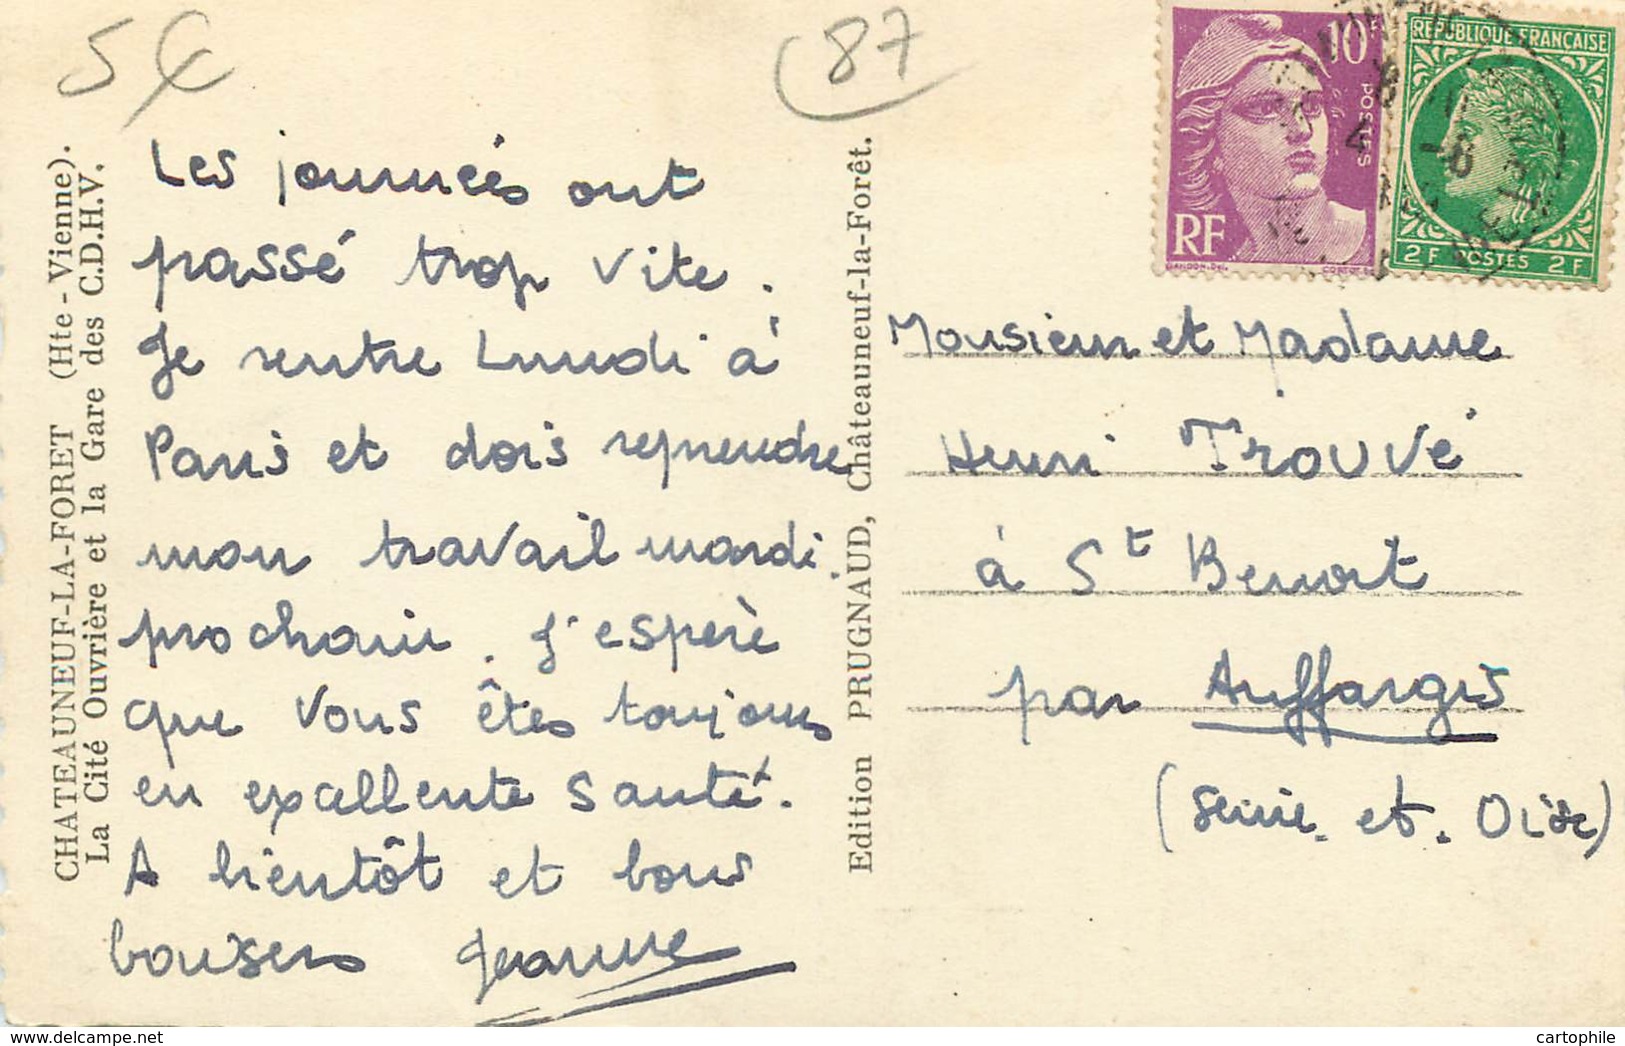 5€
87
CHATEAUNEUF-LA-FORET (Hte-Vienne).
La Cité Ouvrière et la Gare des C.D.H.V.
Les journées ont
passé trop vite.
Je rentre Lundi à
Paris et dois reprendre
mon travail mardi
prochain. J'espère
que vous êtes toujours
en excellente santé.
A bientôt et bons
baisers Jeanne
Edition PRUGNAUD, Châteauneuf-la-Forêt.
10F
POSTES
RF
GANDON-DEL.
REPUBLIQUE FRANÇAISE
2F POSTES 2F
Monsieur et Madame
Henri Trouvé
à St Benoit
par Auffargis
(Seine. et. Oise)
www.delcampe.net
cartophile